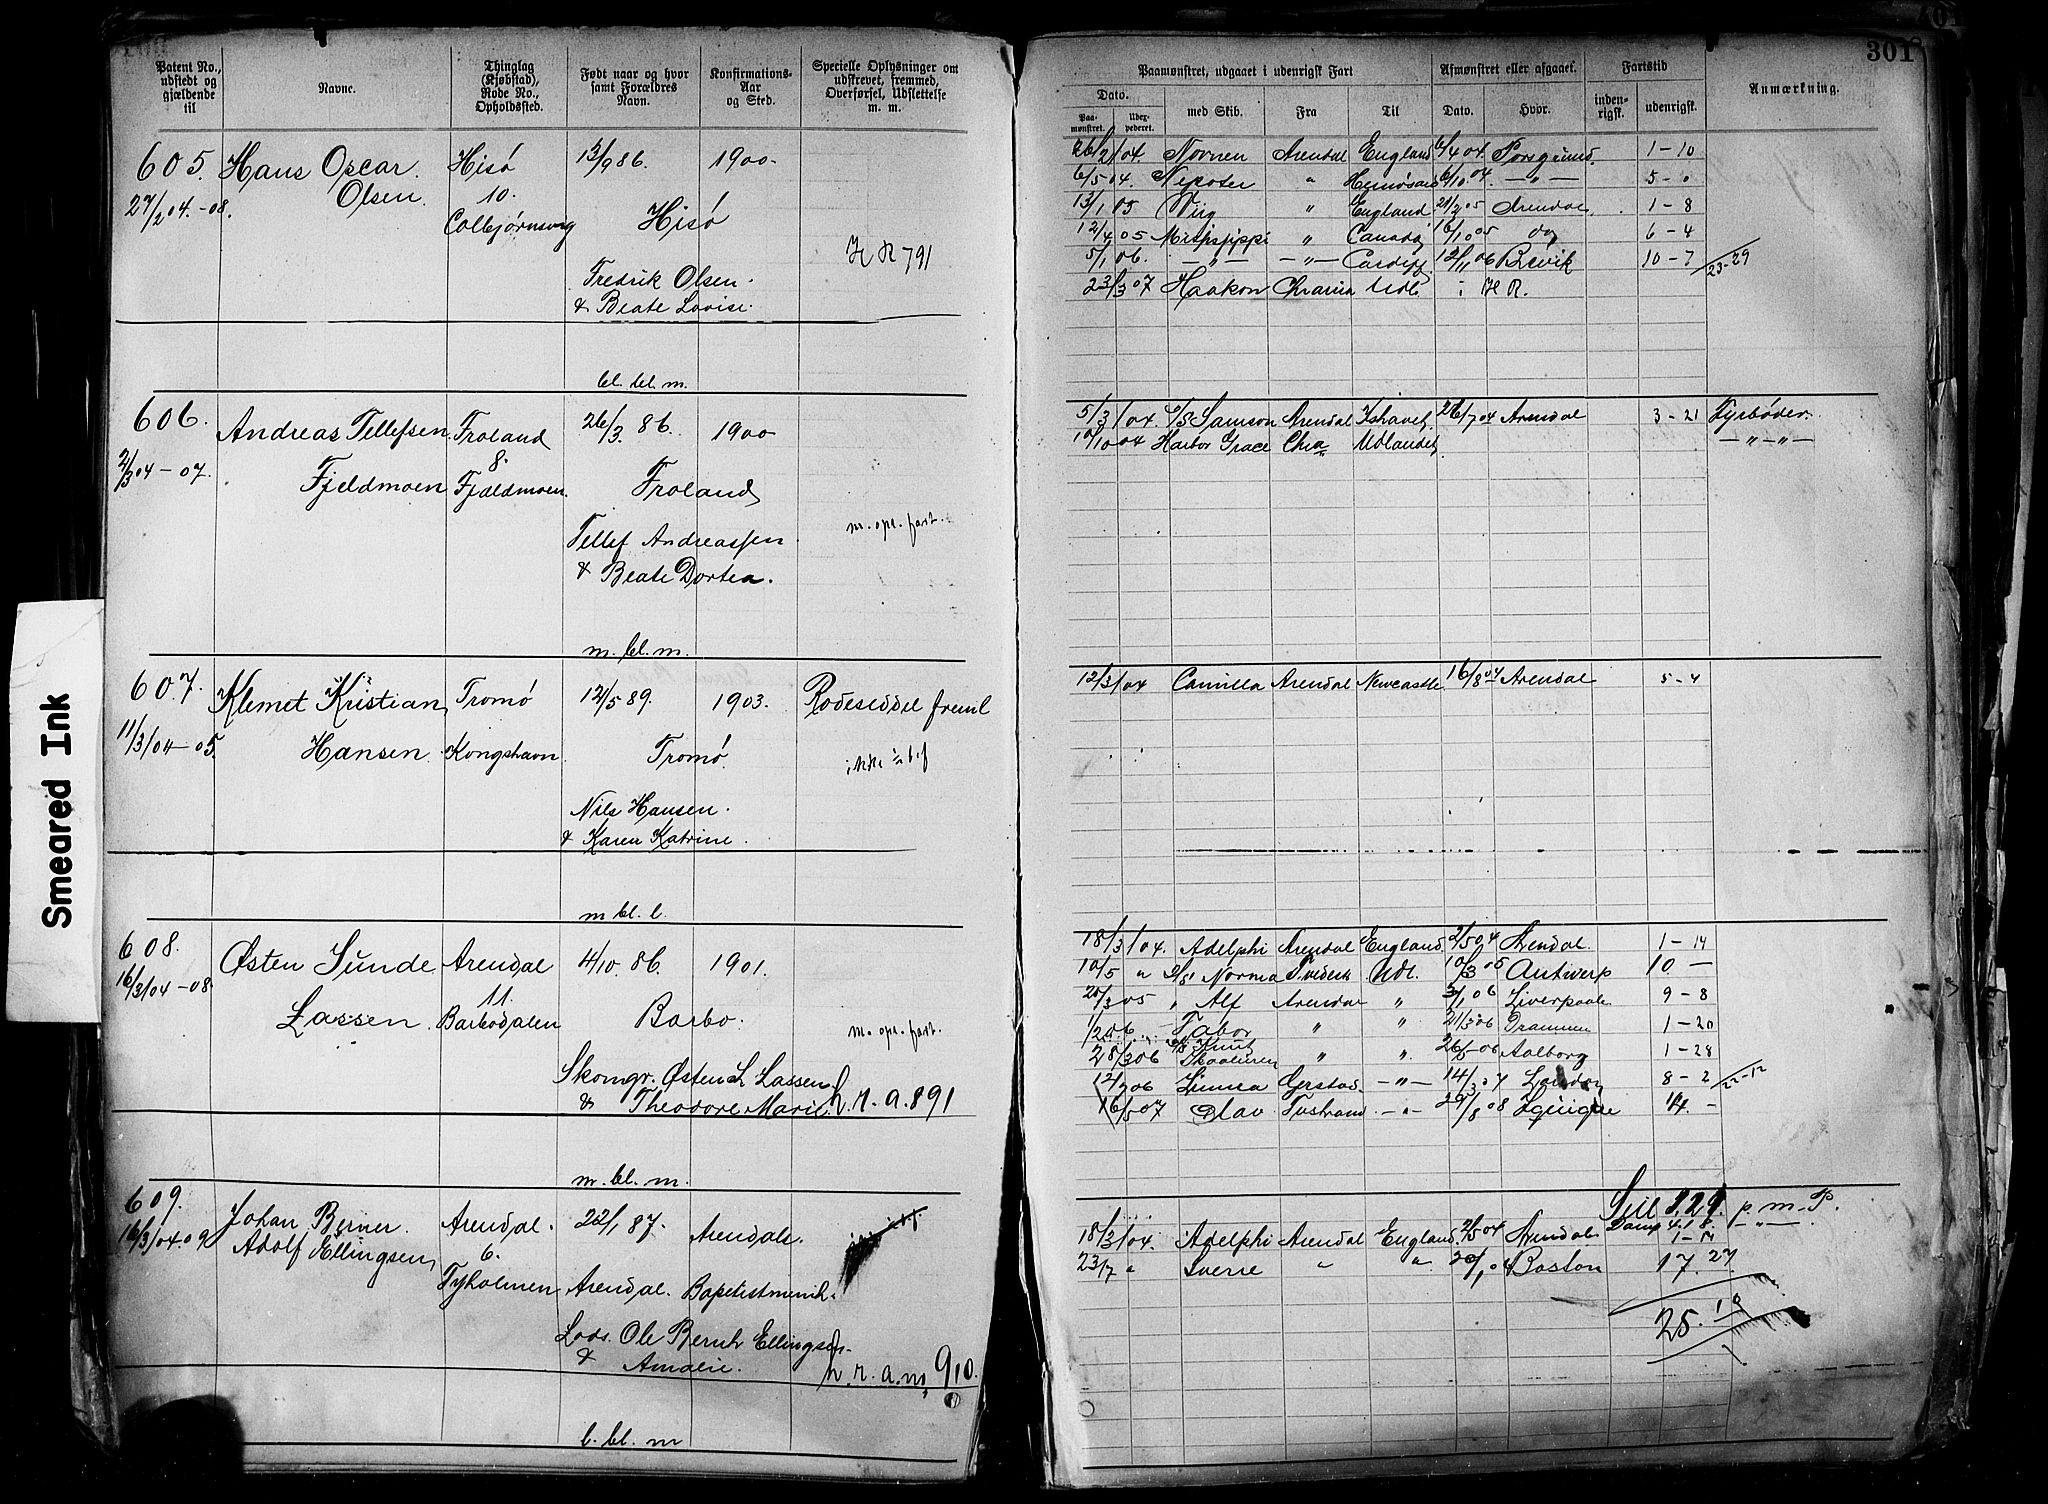 301
Patent No., udstedt og gjældende til
Navne.
Thinglag (Kjøbstad), Rode No., Opholdssted.
Født naar og hvor samt Forældres Navn.
Konfirmations-Aar og Sted.
Specielle Oplysninger om udskrevet, fremmed, Overførsel, Udslettelse m. m.
Paamønstret, udgaaet i udenrigsk Fart
Afmønstret eller afgaaet.
Fartstid
Anmærkning.
Dato.
Paa-mønstret.
Udex-pederet.
med Skib.
Fra
Til
Dato.
Hvor.
inden-rigsk.
udenrigsk.
605. Hans Oscar Hisø 13/9 86. 1900
Olsen. 10.
27/2 04.-08. Colbjørnsvig Hisø
H R 791
Fredrik Olsen.
& Beate Lovise.
bl. bl. m.
26/2 04 Nornen Arendal England 6/4 04 Porsgrund. 1-10
6/5 04. " 6/10 04. -"- 5-0
13/1 05 " England 21/2 05 Arendal 1-8
12/4 05 Missisippi " Canada 16/10 05 do 6-4
5/1 06. -"- -"- Cardiff 12/11 06 Brevik 10-7 23-29
23/3 07 Haakon Chrania Udl. i H R.
606. Andreas Tellefsen Froland 26/3. 86. 1900
8.
2/3 04-07. Fjeldmoen Fjældmoen. Froland
m. opl. fart.
Tellef Andreassen
& Beate Dortea.
m. bl. m.
5/3 04. S/S Samson Arendal Ishavet, 26/7 04 Arendal 3-21 Fyrbøder.
10/10 04 Harbor Grace Chra Udlandet -"-"-
607. Klemet Kristian Tromø 12/5 89. 1903. Rodeseddel freml
11/3 04-05. Hansen Kongshavn. Tromø.
Nils Hansen.
& Karen Katrine.
m bl. l.
12/3 04 Camilla Arendal Newcastle 16/8 04 Arendal 5-4
608. Østen Sunde Arendal 4/10. 86. 1901.
11.
16/3 04-08. Lassen. Barbodalen Barbo.
m. opl. fart.
Skomgr. Østen L Lassen
& Theodore Marie h. r. a. 891
m. bl. m.
18/3 04. Adelphi Arendal England. 2/5 04 Arendal. 1-14
10/5 " S/S Norma Tvedestr Udl. 10/3 05 Antwerp 10-
20/3 05 " Alf Arendal " 3/1 06 Liverpool 9-8
1/2 06 Tabor " " 21/3 06 Drammen 1-20
28/3 06 S/S Knut Skaaluren " ". 26/5 06 Aalborg 1-28
12/7 06 Linnea Gjerstad -"- 14/3 07 London 8-2 22-12
16/5 07 Olav Tvstrand -"- 29/8 08 Iquique 14.-
609. Johan Berner Arendal. 22/1 87. Arendal.
16/3 04.09 Adolf Ellingsen 6.
Tyholmen Arendal. Baptistmenih.
Lods. Ole Bernh Ellingsen
& Amalie. h. r. a. no 910.
b. bl. m
Seil 1.29. p. m. P.
Damp 4.18. -"-
18/3 04. Adelphi Arendal England. 2/5 04 Arendal 1-14
23/7 " Sverre " " Boston 17.27
25.10
Smeared Ink